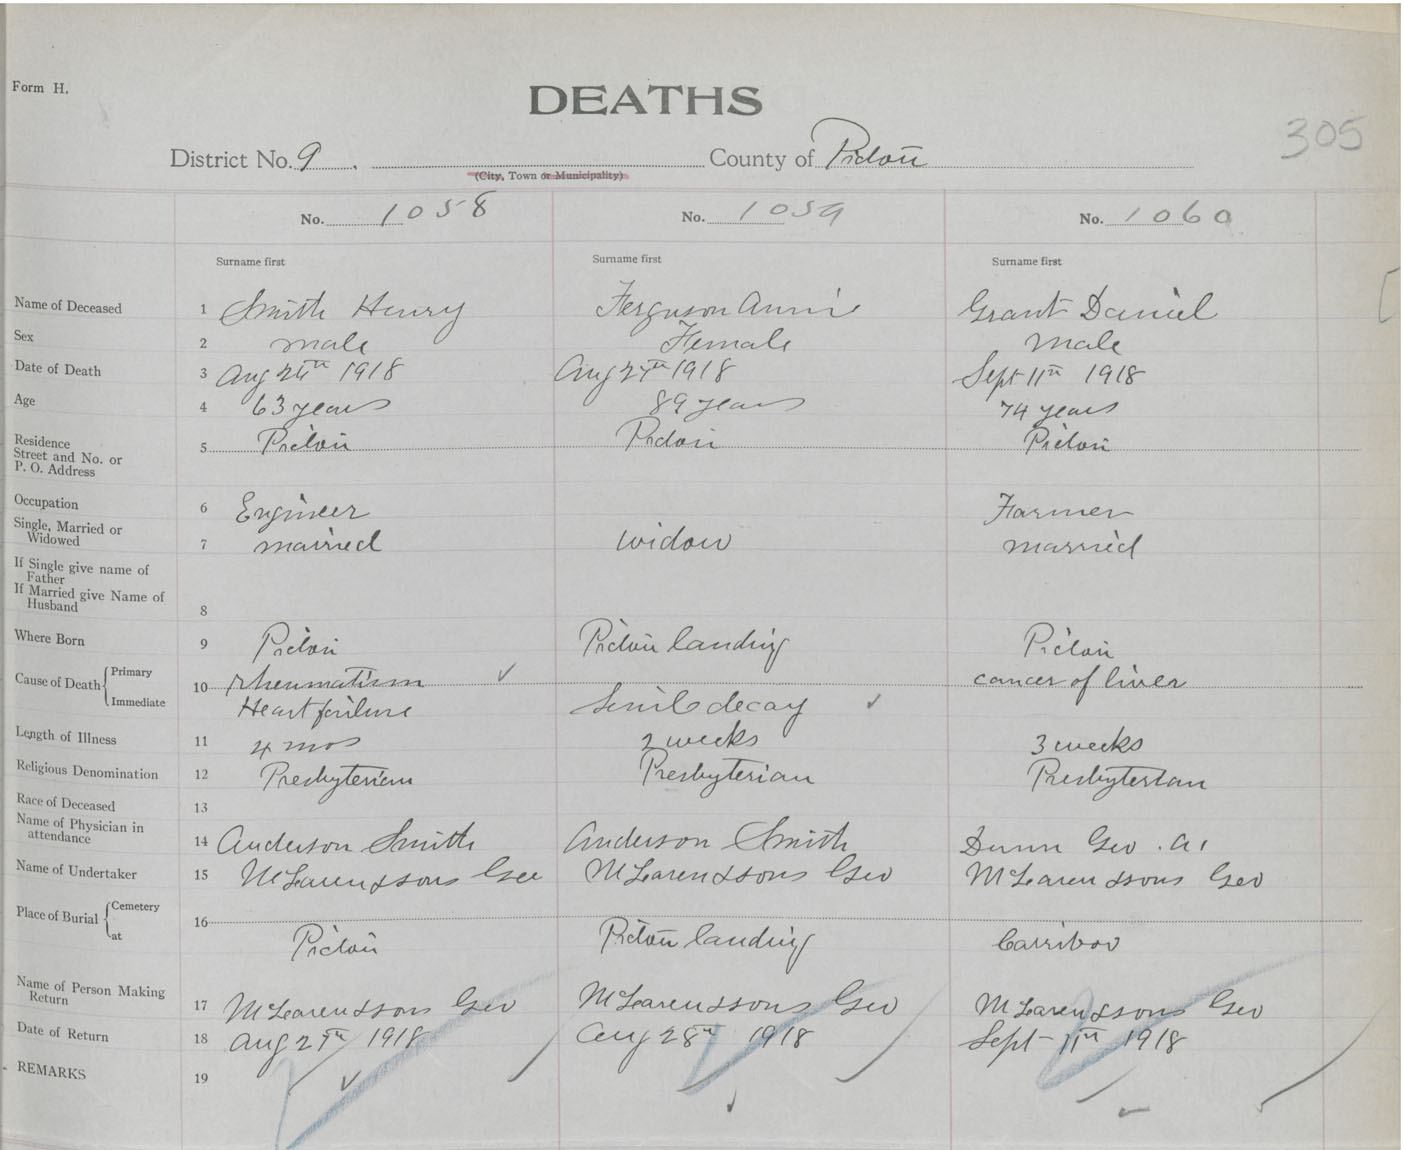 Form H.
DEATHS
305
District No. 9. County of Pictou
(City, Town or Municipality)
No. 1058 No. 1059 No. 1060
Surname first Surname first Surname first
Name of Deceased 1 Smith Henry Ferguson Annie Grant Daniel
Sex 2 male Female Male
Date of Death 3 Aug 1918 Aug 27th 1918 Sept 11th 1918
Age 4 63 years 89 years 74 years
Residence
Street and No. or 5 Pictou Pictou Pictou
P. O. Address
Occupation 6 Engineer Farmer
Single, Married or
Widowed 7 married widow married
If Single give name of
Father
If Married give Name of
Husband 8
Where Born 9 Pictou Pictou landing Pictou
Cause of Death Primary 10 rheumatism cancer of liver
Immediate Heart failure Senile decay
Length of Illness 11 4 mos 2 weeks 3 weeks
Religious Denomination 12 Presbyterian Presbyterian Presbyterian
Race of Deceased 13
Name of Physician in
attendance 14 Anderson Smith Anderson Smith Dunn Geo. A.
Name of Undertaker 15 McLaren & sons Geo McLaren & sons Geo McLaren & sons Geo
Place of Burial Cemetery 16
at Pictou Pictou landing Carribou
Name of Person Making
Return 17 McLaren & sons Geo McLaren & sons Geo McLaren & sons Geo
Date of Return 18 Aug 1918 Aug 28th 1918 Sept 11th 1918
REMARKS 19